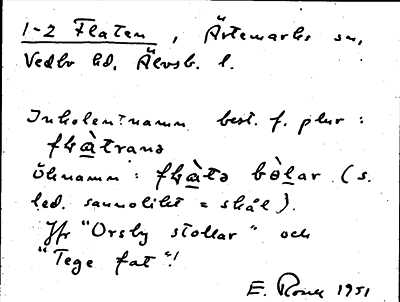 1-2 Flaten, Ärtemarks sn,
Vedbo hd, Älvsb. l.
Inbolentnamn best. f. plur:
flàtranə
Öknamn: flàtə bòlar (s.
led. sannolikt = skål).
Jfr "Orsby stollar" och
"Tege fat"!
E. 1951